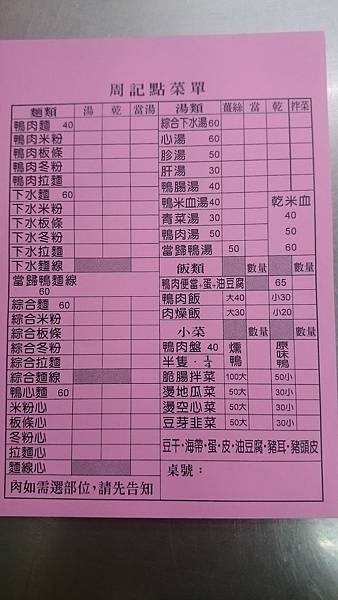 周記點菜單
麵類 湯 乾 當湯
鴨肉麵 40
鴨肉米粉
鴨肉板條
鴨肉冬粉
鴨肉拉麵
下水麵 60
下水米粉
下水板條
下水冬粉
下水拉麵
下水麵線
當歸鴨麵線
60
綜合麵 60
綜合米粉
綜合板條
綜合冬粉
綜合拉麵
綜合麵線
鴨心麵 60
米粉心
板條心
冬粉心
拉麵心
麵線心
肉如需選部位，請先告知
湯類 薑絲 當 乾 拌菜
綜合下水湯60
心湯 60
胗湯 50
肝湯 30
鴨腸湯 40
鴨米血湯40
青菜湯 30
鴨肉湯 50
當歸鴨湯 50
乾米血
40
50
60
飯類 數量 數量
鴨肉便當+蛋+油豆腐 65
鴨肉飯 大40 小30
肉燥飯 大30 小20
小菜 數量 數量
鴨肉盤 40 燻鴨 原味鴨
半隻．¼
脆腸拌菜 100大 50小
燙地瓜菜 50大 30小
燙空心菜 50大 30小
豆芽韭菜 50大 30小
豆干．海帶．蛋．皮．油豆腐．豬耳．豬頭皮
桌號：